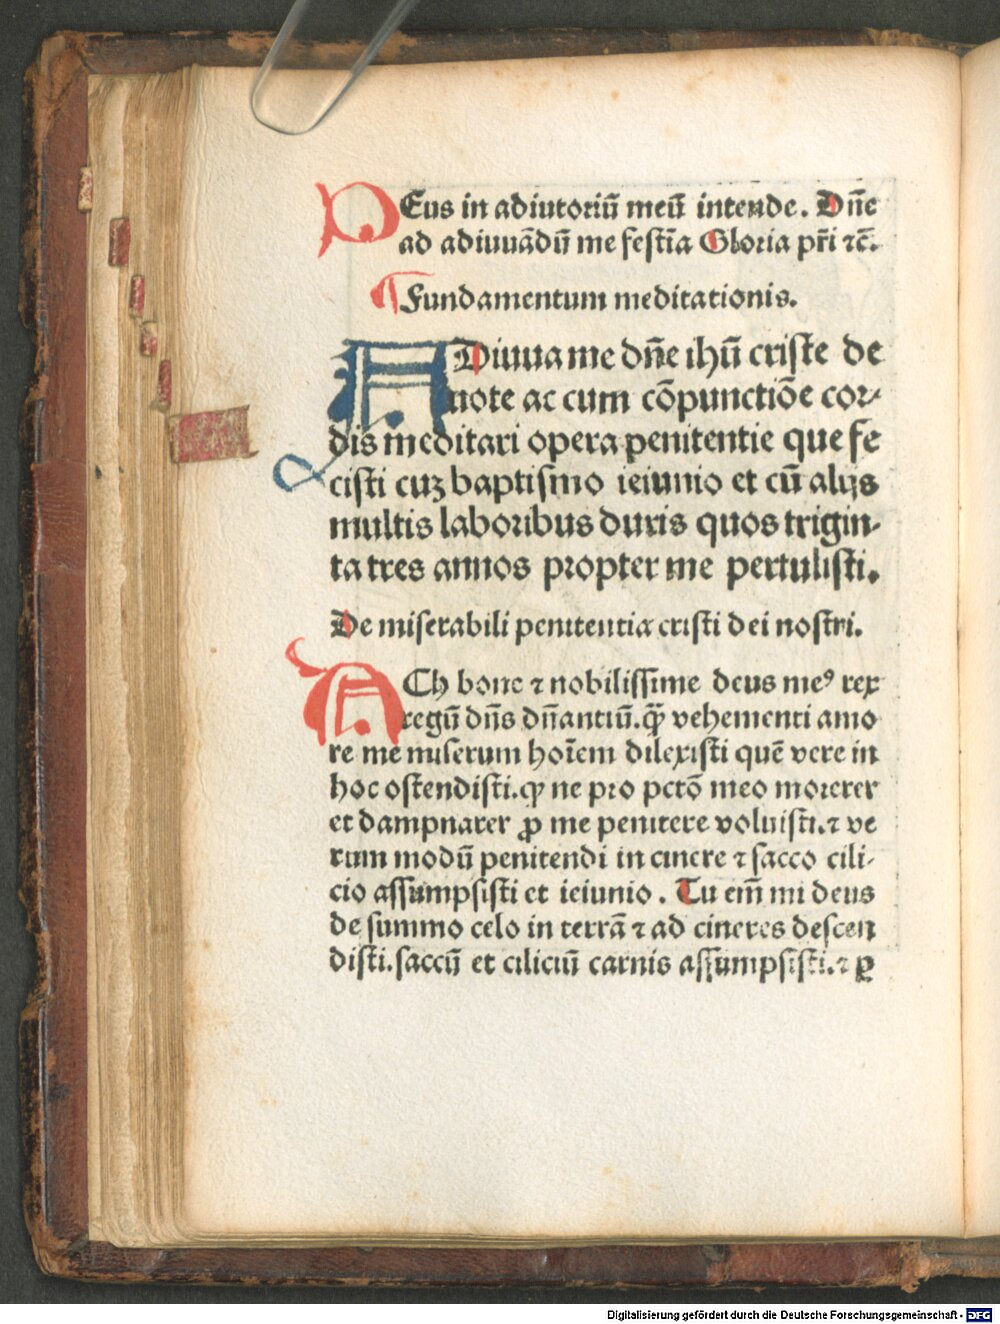 DEus in adiutoriū meū intende. Dn̄e
ad adiuuādū me festīa Gloria pr̄i ⁊c̄.
¶Fundamentum meditationis.
ADiuua me dn̄e ihū criste de
uote ac cum cōpunctiōe cor⸗
dis meditari opera penitentie que fe
cisti cuȝ baptismo ieiunio et cū alijs
multis laboribus duris quos trigin⸗
ta tres annos propter me pertulisti.
De miserabili penitentia cristi dei nostri.
ACh bone ⁊ nobilissime deus meꝰ rex
regū dn̄s dn̄antiū.qꝫ̄ vehementi amo
re me miserum hoīem dilexisti quē vere in
hoc ostendisti.ꝙ ne pro pctō meo morerer
et dampnarer ꝓ me penitere voluisti.⁊ ve
rum modū penitendi in cinere ⁊ sacco cili⸗
cio assumpsisti et ieiunio. Tu em̄ mi deus
de summo celo in terrā ⁊ ad cineres descen
disti.saccū et ciliciū carnis assumpsisti.⁊ ꝑ
Digitalisierung gefördert durch die Deutsche Forschungsgemeinschaft - DFG